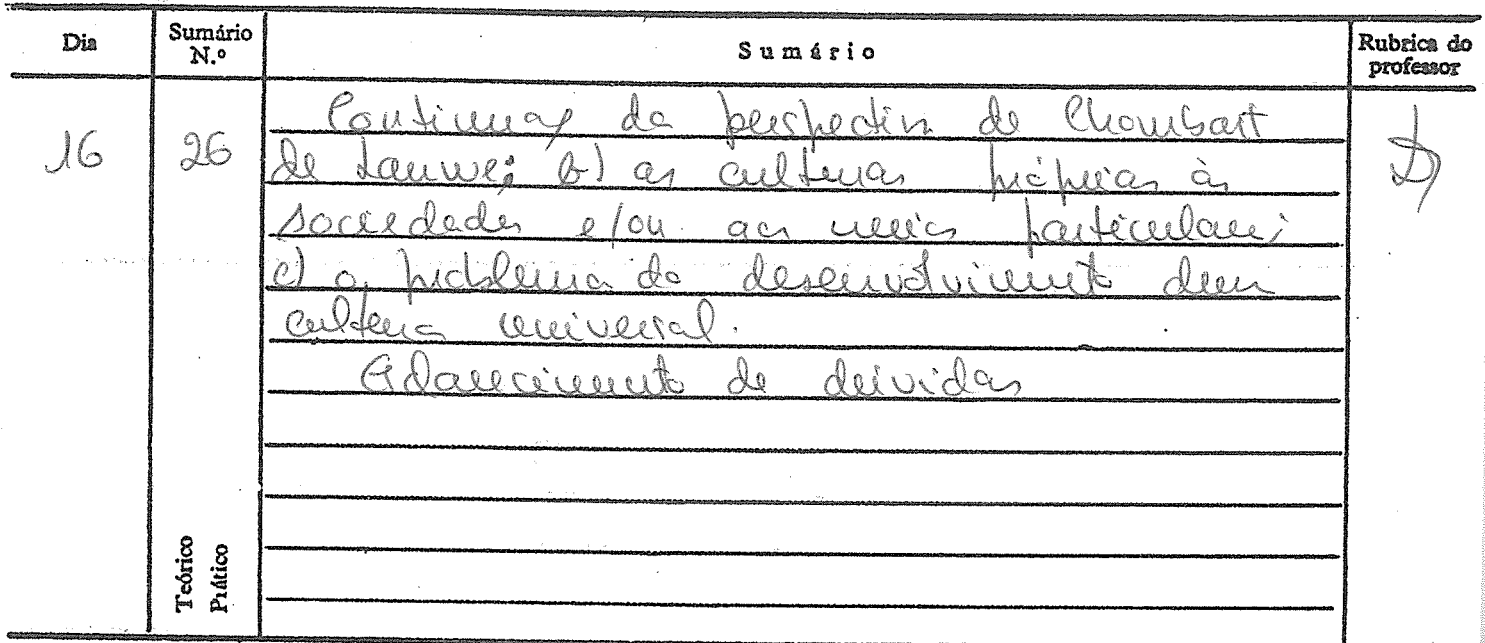 Dia Sumário N.º Sumário Rubrica do professor
16 26
Continuaç da perspectiva de Chombart
de Lauwe: b) as culturas próprias às
sociedades e/ou aos meios particulares;
c) o problema do desenvolvimento duma
cultura universal.
Esclarecimento de dúvidas
Teórico
Prático